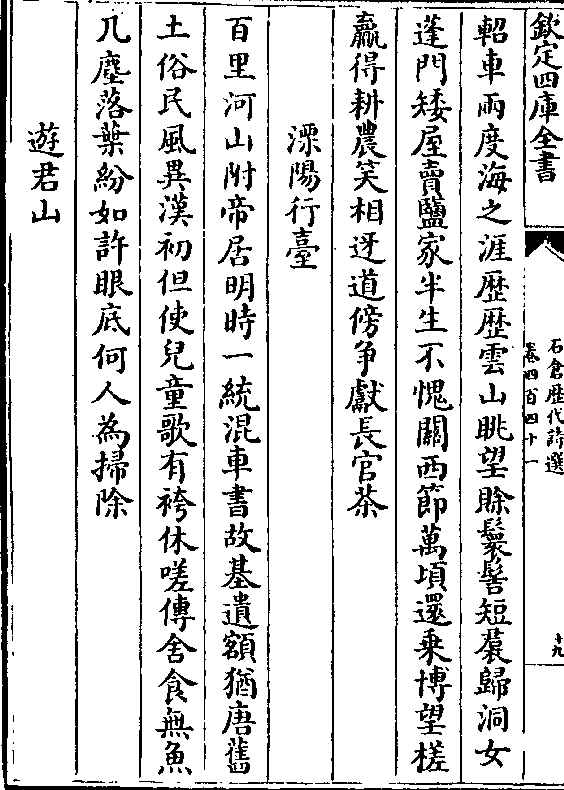 欽定四庫全書
石倉歷代詩選
卷四百四十一
十九
軺車兩度海之涯歴歴雲山眺望賒鬟髻短蓑歸洞女
蓬門矮屋賣鹽家半生不愧關西節萬頃還乗博望槎
贏得耕農笑相迓道傍争獻長官茶
溧陽行臺
百里河山附帝居明時一統混車書故基遺額猶唐舊
土俗民風異漢初但使兒童歌有袴休嗟傳舍食無魚
几塵落葉紛如許眼底何人為掃除
遊君山